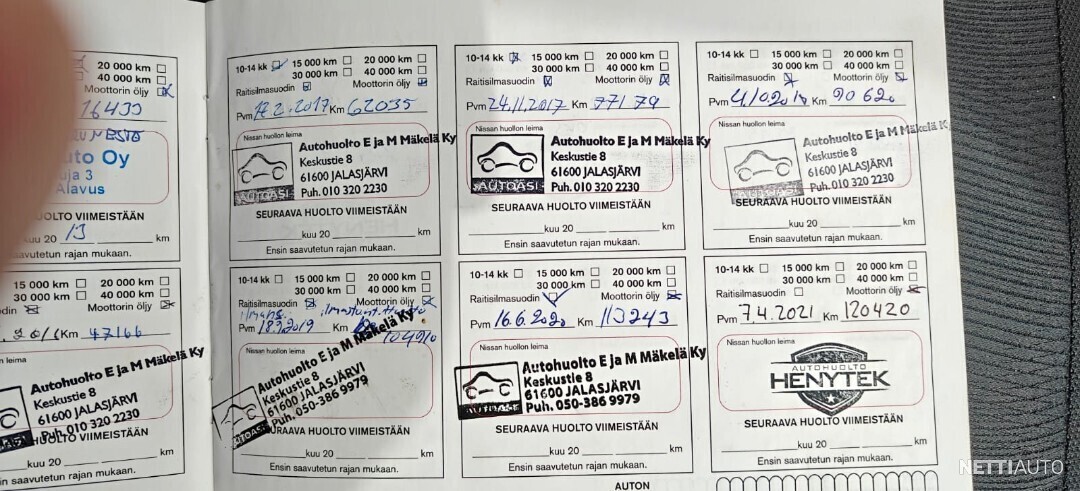 20 000 km
40 000 km
Moottorin öljy
16400
uto Oy
uja 3
Alavus
HUOLTO VIIMEISTÄÄN
kuu 20 13 km
saavutetun rajan mukaan.
10-14 kk 15 000 km 20 000 km
30 000 km 40 000 km
Raitisilmasuodin Moottorin öljy
Pvm 17.2.2017 Km 62035
Nissan huollon leima
Autohuolto E ja M Mäkelä Ky
Keskustie 8
61600 JALASJÄRVI
Puh. 010 320 2230
AUTOASI
SEURAAVA HUOLTO VIIMEISTÄÄN
kuu 20 km
Ensin saavutetun rajan mukaan.
10-14 kk 15 000 km 20 000 km
30 000 km 40 000 km
Raitisilmasuodin Moottorin öljy
Pvm 24.11.2017 Km 77179
Nissan huollon leima
Autohuolto E ja M Mäkelä Ky
Keskustie 8
61600 JALASJÄRVI
Puh. 010 320 2230
AUTOASI
SEURAAVA HUOLTO VIIMEISTÄÄN
kuu 20 km
Ensin saavutetun rajan mukaan.
10-14 kk 15 000 km 20 000 km
30 000 km 40 000 km
Raitisilmasuodin Moottorin öljy
Pvm 4.10.2018 Km 90620
Nissan huollon leima
Autohuolto E ja M Mäkelä K
Keskustie 8
61600 JALASJÄRVI
Puh. 010 320 2230
AUTOASI
SEURAAVA HUOLTO VIIMEISTÄÄN
kuu 20 km
Ensin saavutetun rajan mukaan.
15 000 km 20 000 km
30 000 km 40 000 km
Moottorin öljy
Km 47166
leima
Autohuolto E ja M Mäkelä Ky
Keskustie 8
61600 JALASJÄRVI
Puh. 010 320 2230
HUOLTO VIIMEISTÄÄN
kuu 20 km
Ensin saavutetun rajan mukaan.
10-14 kk 15 000 km 20 000 km
30 000 km 40 000 km
Raitisilmasuodin Moottorin öljy
Pvm Km 104910
Nissan huollon leima
Autohuolto E ja M Mäkelä Ky
Keskustie 8
61600 JALASJÄRVI
Puh. 050-386 9979
AUTOASI
URAAVA HUOLTO VIIMEISTÄÄN
kuu 20 km
Ensin saavutetun rajan mukaan.
10-14 kk 15 000 km 20 000 km
30 000 km 40 000 km
Raitisilmasuodin Moottorin öljy
Pvm 16.6.2020 Km 113243
Nissan huollon leima
Autohuolto E ja M Mäkelä Ky
Keskustie 8
61600 JALASJÄRVI
Puh. 050-386 9979
AUTOASI
SEURAAVA HUOLTO VIIMEISTÄÄN
kuu 20 km
Ensin saavutetun rajan mukaan.
10-14 kk 15 000 km 20 000 km
30 000 km 40 000 km
Raitisilmasuodin Moottorin öljy
Pvm 7.4.2021 Km 120420
Nissan huollon leima
AUTOHUOLTO
HENYTEK
SEURAAVA HUOLTO VIIMEISTÄÄN
kuu 20 km
Ensin saavutetun rajan mukaan.
AUTON
NETTIAUTO